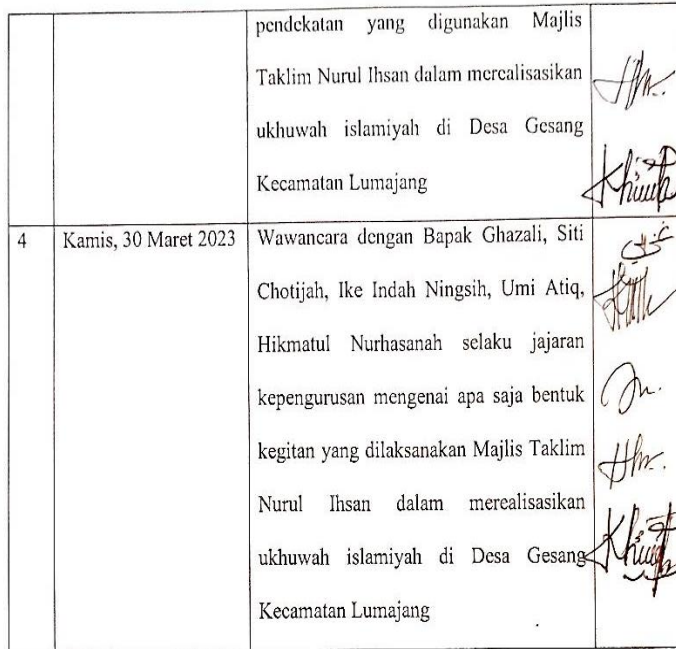 pendekatan yang digunakan Majlis
Taklim Nurul Ihsan dalam merealisasikan
ukhuwah islamiyah di Desa Gesang
Kecamatan Lumajang
4 Kamis, 30 Maret 2023 Wawancara dengan Bapak Ghazali, Siti
Chotijah, Ike Indah Ningsih, Umi Atiq,
Hikmatul Nurhasanah selaku jajaran
kepengurusan mengenai apa saja bentuk
kegitan yang dilaksanakan Majlis Taklim
Nurul Ihsan dalam merealisasikan
ukhuwah islamiyah di Desa Gesang
Kecamatan Lumajang